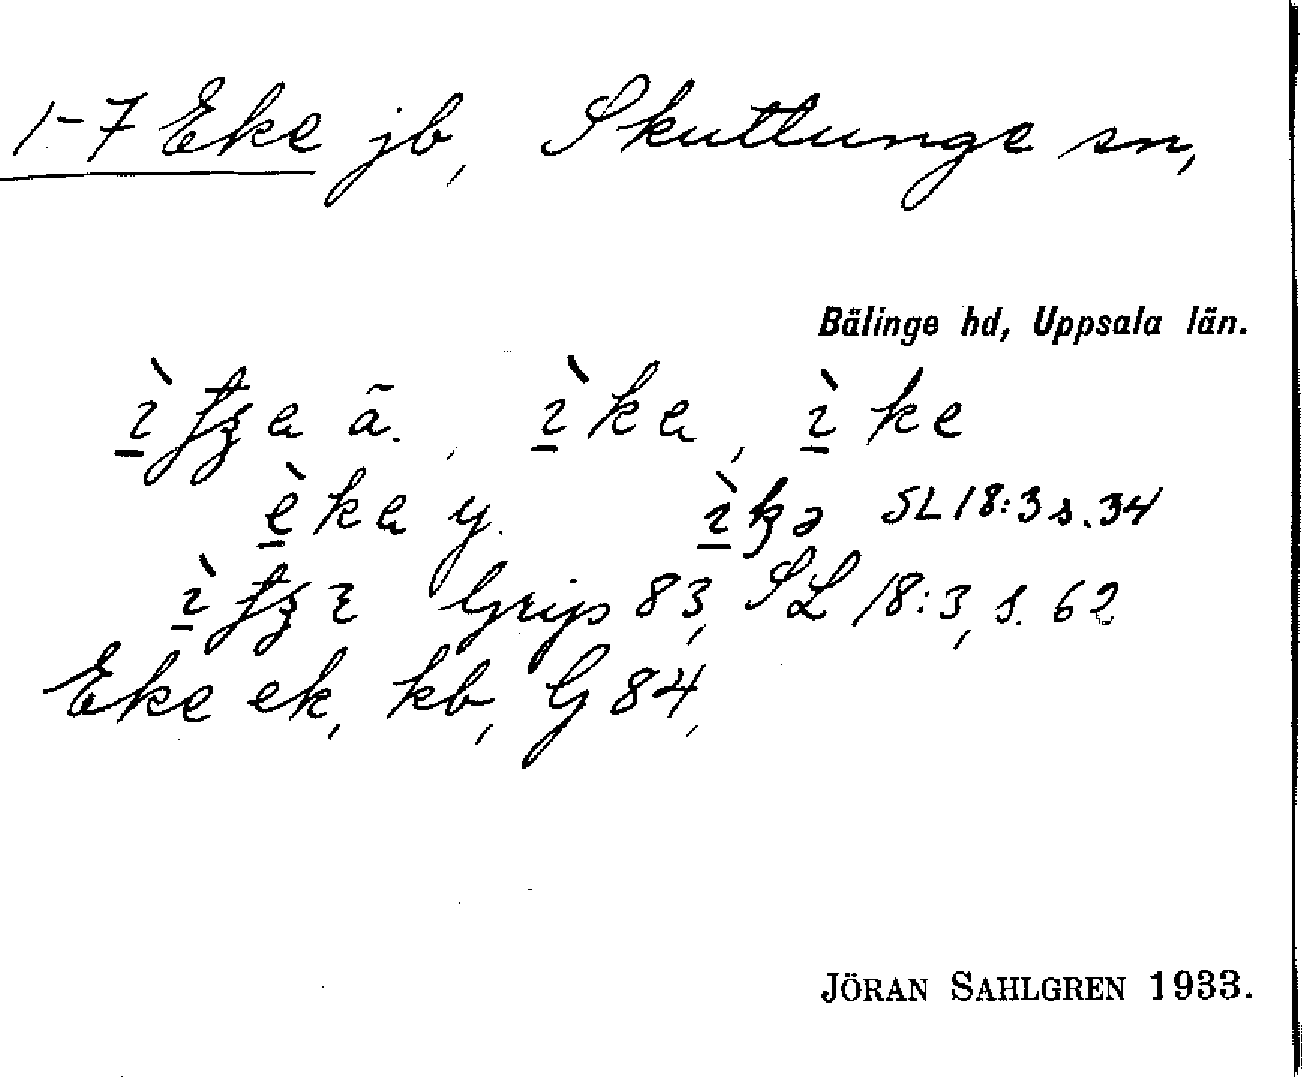 1-7 Eke jb, Skuttunge sn,
Bälinge hd, Uppsala län.
ä. , ı̱̀ka , ı̱̀ke
è̱ka y. SL 18:3 s. 34
Grip 83, SL 18:3, s. 62
Eke ek, kb, G 84,
JÖRAN SAHLGREN 1933.